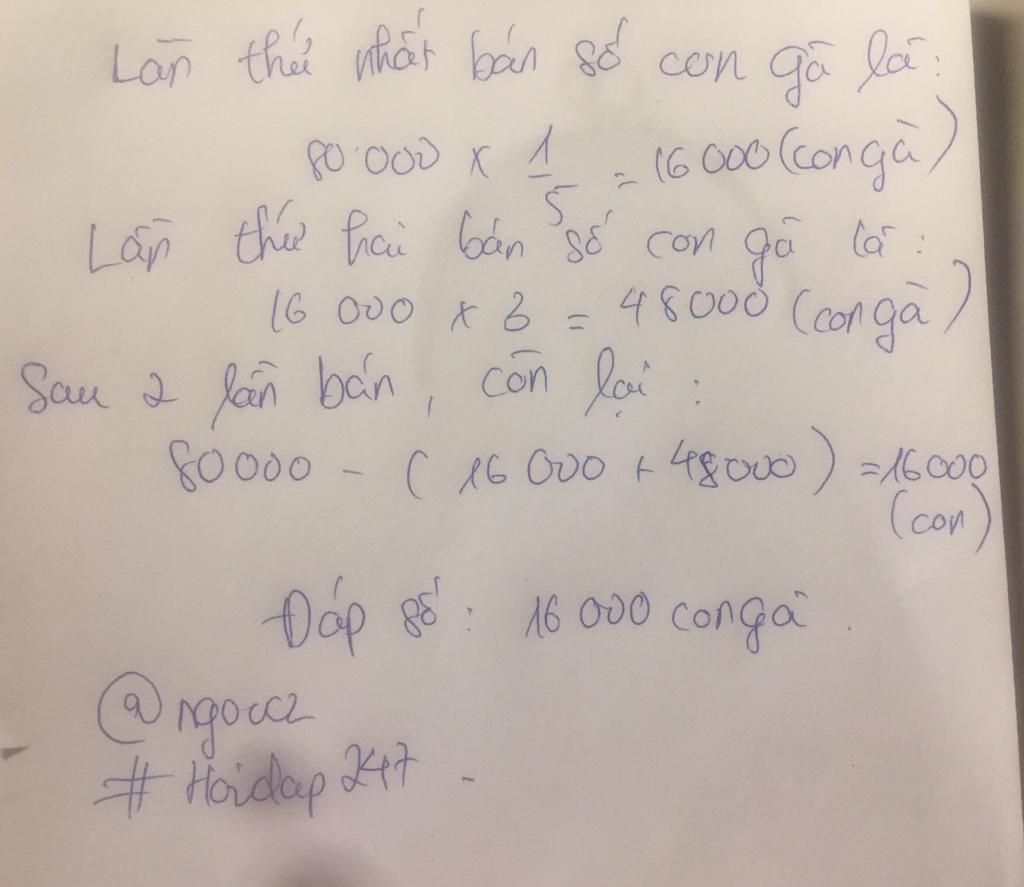 Lần thứ nhất bán số con gà là:
80 000 x 1/5 = 16 000 (con gà)
Lần thứ hai bán số con gà là:
16 000 x 3 = 48000 (con gà)
Sau 2 lần bán, còn lại:
80000 - (16 000 + 48000) = 16000
(con)
Đáp số: 16 000 con gà.
@ngocc2
# Hoidap 247 -